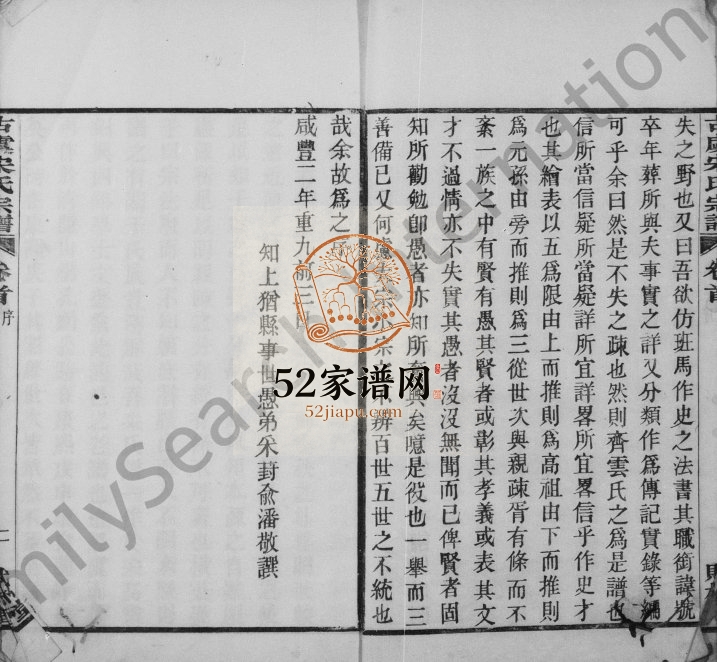 失之野也又曰吾欲仿班馬作史之法書其職銜諱號
卒年葬所與夫事實之詳又分類作爲傳記實錄等編
可乎余曰然是不失之疎也然則齊雲氏之爲是譜也
信所當信疑所當疑詳所宜詳畧所宜畧信乎作史才
也其繪表以五爲限由上而推則爲高祖由下而推則
爲元孫由旁而推則爲三從世次與親疎胥有條而不
紊一族之中有賢有愚其賢者或彰其孝義或表其文
才不過情亦不失實其愚者沒沒無聞而已俾賢者固
知所勸勉卽愚者亦知所 興矣噫是役也一舉而三
善備已又何慮 宗小宗 不辨百世五世之不統也
哉余故爲之序
咸豐二年重九前三
知上猶縣事世愚弟宋封俞潘敬譔
古虞宋氏宗譜
卷首
序
古虞宋氏宗譜
卷首
52家谱网
52jiapu.com
milySearch International